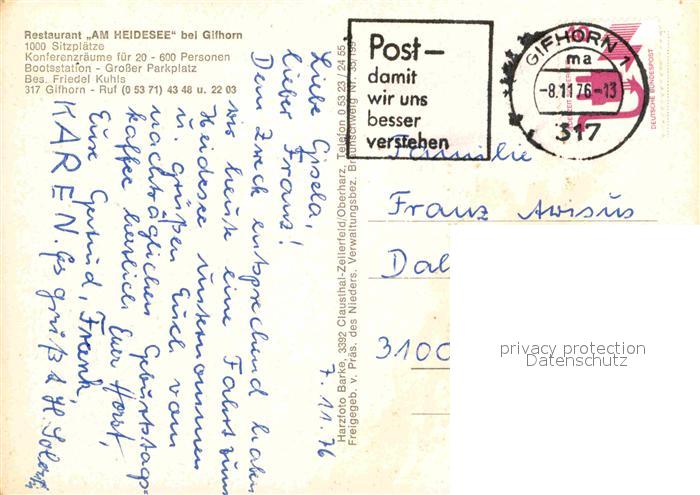 Restaurant „AM HEIDESEE" bei Gifhorn
1000 Sitzplätze
Konferenzräume für 20 - 600 Personen
Bootsstation - Großer Parkplatz
Bes. Friedel Kuhls
317 Gifhorn - Ruf (0 53 71) 43 48 u. 22 03
Post-
damit
wir uns
besser
verstehen
GIFHORN 1
ma
-8.11.76-13
317
DEUTSCHE BUNDESPOST
Liebe Gisela,
lieber Franz!
Dem Zweck entsprechend haben
wir heute eine Fahrt zum
Heidesee unternommen
u. grüßen Euch vom
nachträglichen Geburtstags-
kaffee herzlich Euer Horst,
Eure Gertrud, Frank,
KAREN. Es grüßt H.
7.11.76
Harzfoto Barke, 3392 Clausthal-Zellerfeld/Oberharz, Telefon 0 53 23 / 24 55
Freigegeb. v. Präs. des Nieders. Verwaltungsbez. Braunschweig Nr.
Familie
Franz Arisus
Dal
3100
privacy protection
Datenschutz